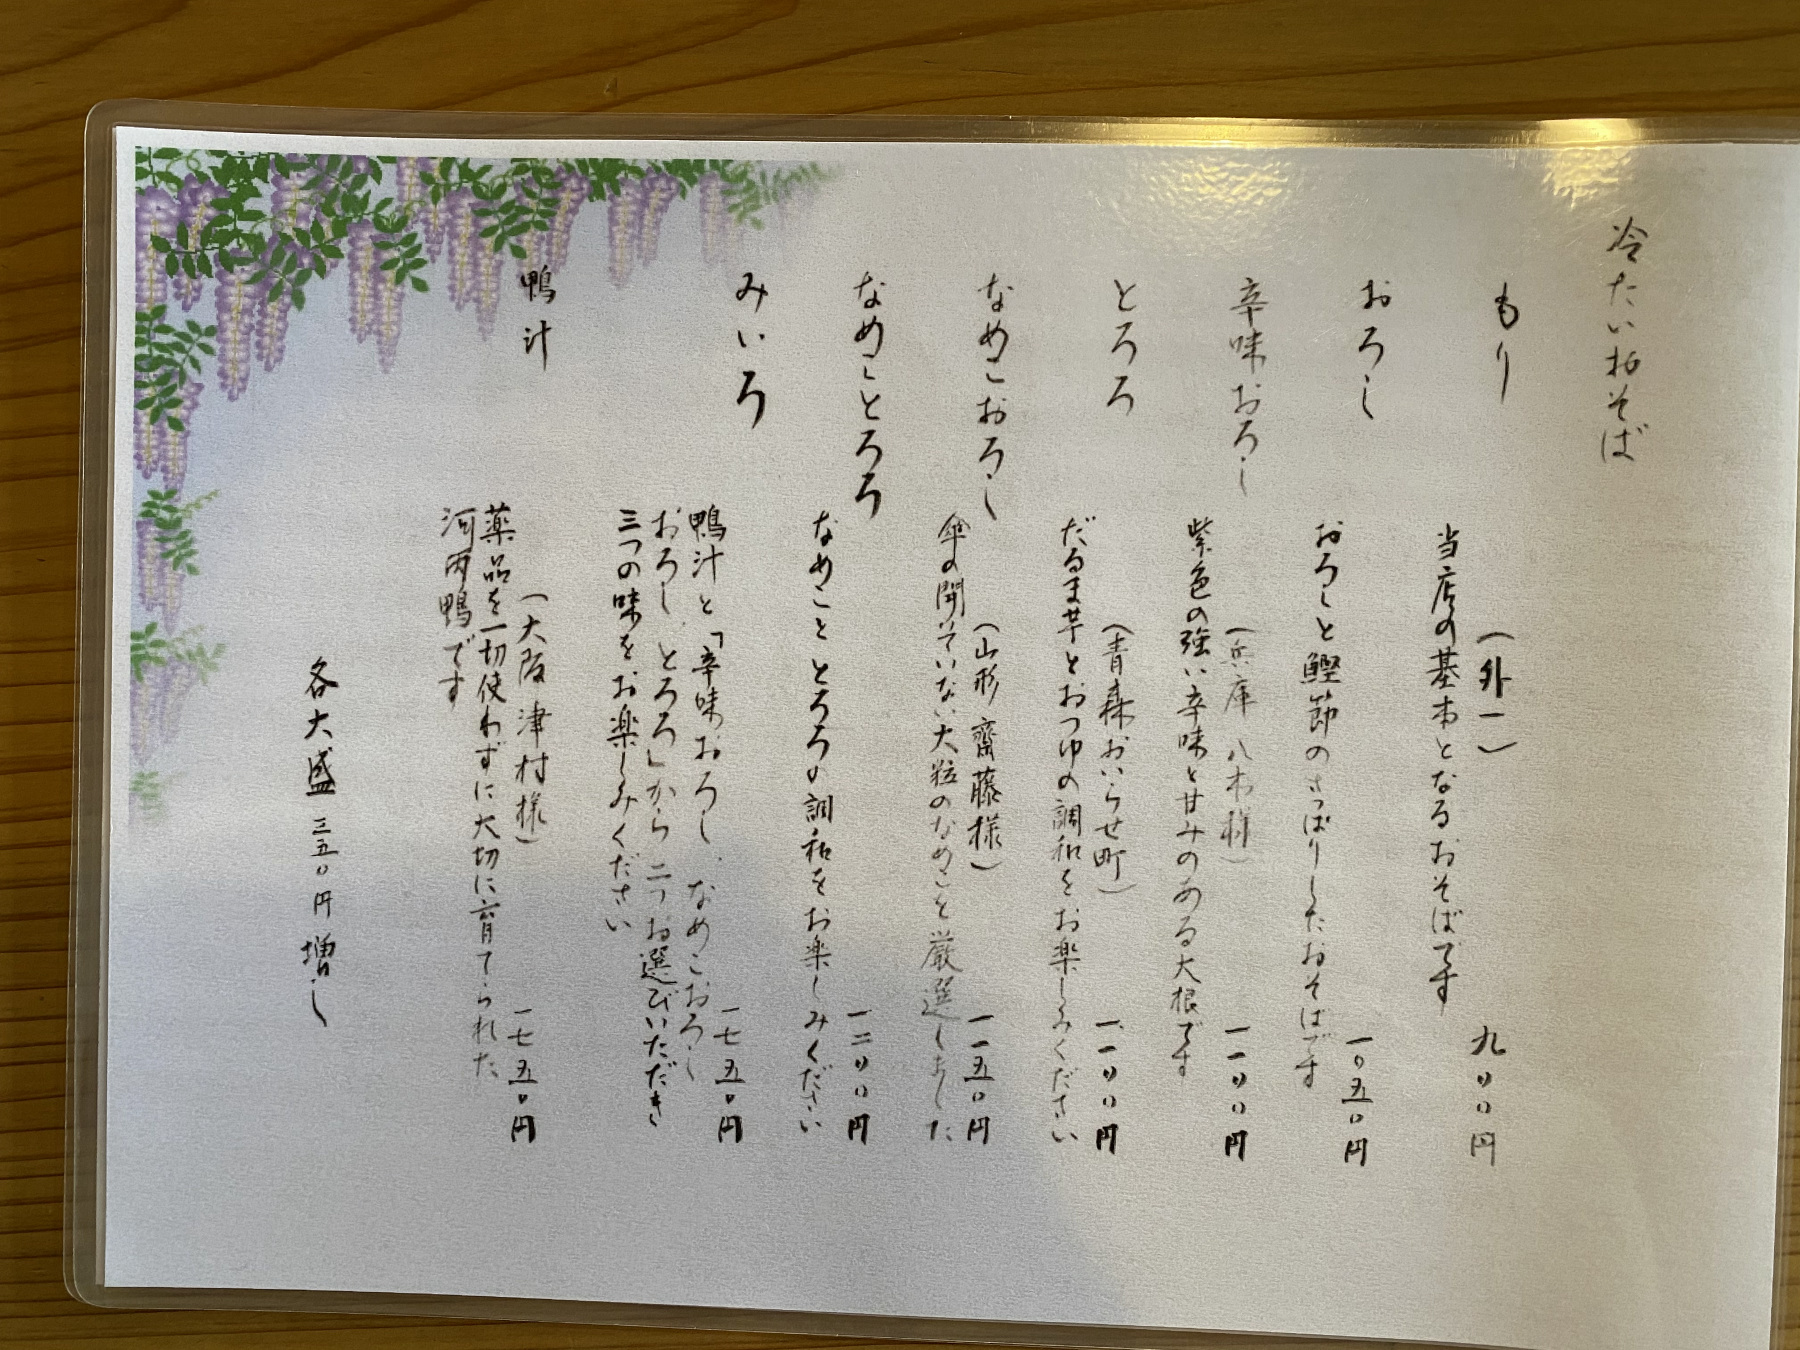 冷たいおそば
もり
(外一)
九〇〇円
当店の基本となるおそばです
おろし
一〇五〇円
おろしと鰹節のさっぱりしたおそばです
辛味おろし
(兵庫 八木様)
一一〇〇円
紫色の強い辛味と甘みのある大根です
とろろ
(青森おいらせ町)
一一〇〇円
だるま芋とおつゆの調和をお楽しみください
なめこおろし
(山形 齋藤様)
一一五〇円
傘の開いていない大粒のなめこを厳選しました
なめことろろ
一二〇〇円
なめこととろろの調和をお楽しみください
みいろ
一七五〇円
鴨汁と「辛味おろし、なめこおろし
おろし、とろろ」から二つお選びいただき
三つの味をお楽しみください
鴨汁
(大阪 津村様)
一七五〇円
薬品を一切使わずに大切に育てられた
河内鴨です
各大盛 三五〇円増し